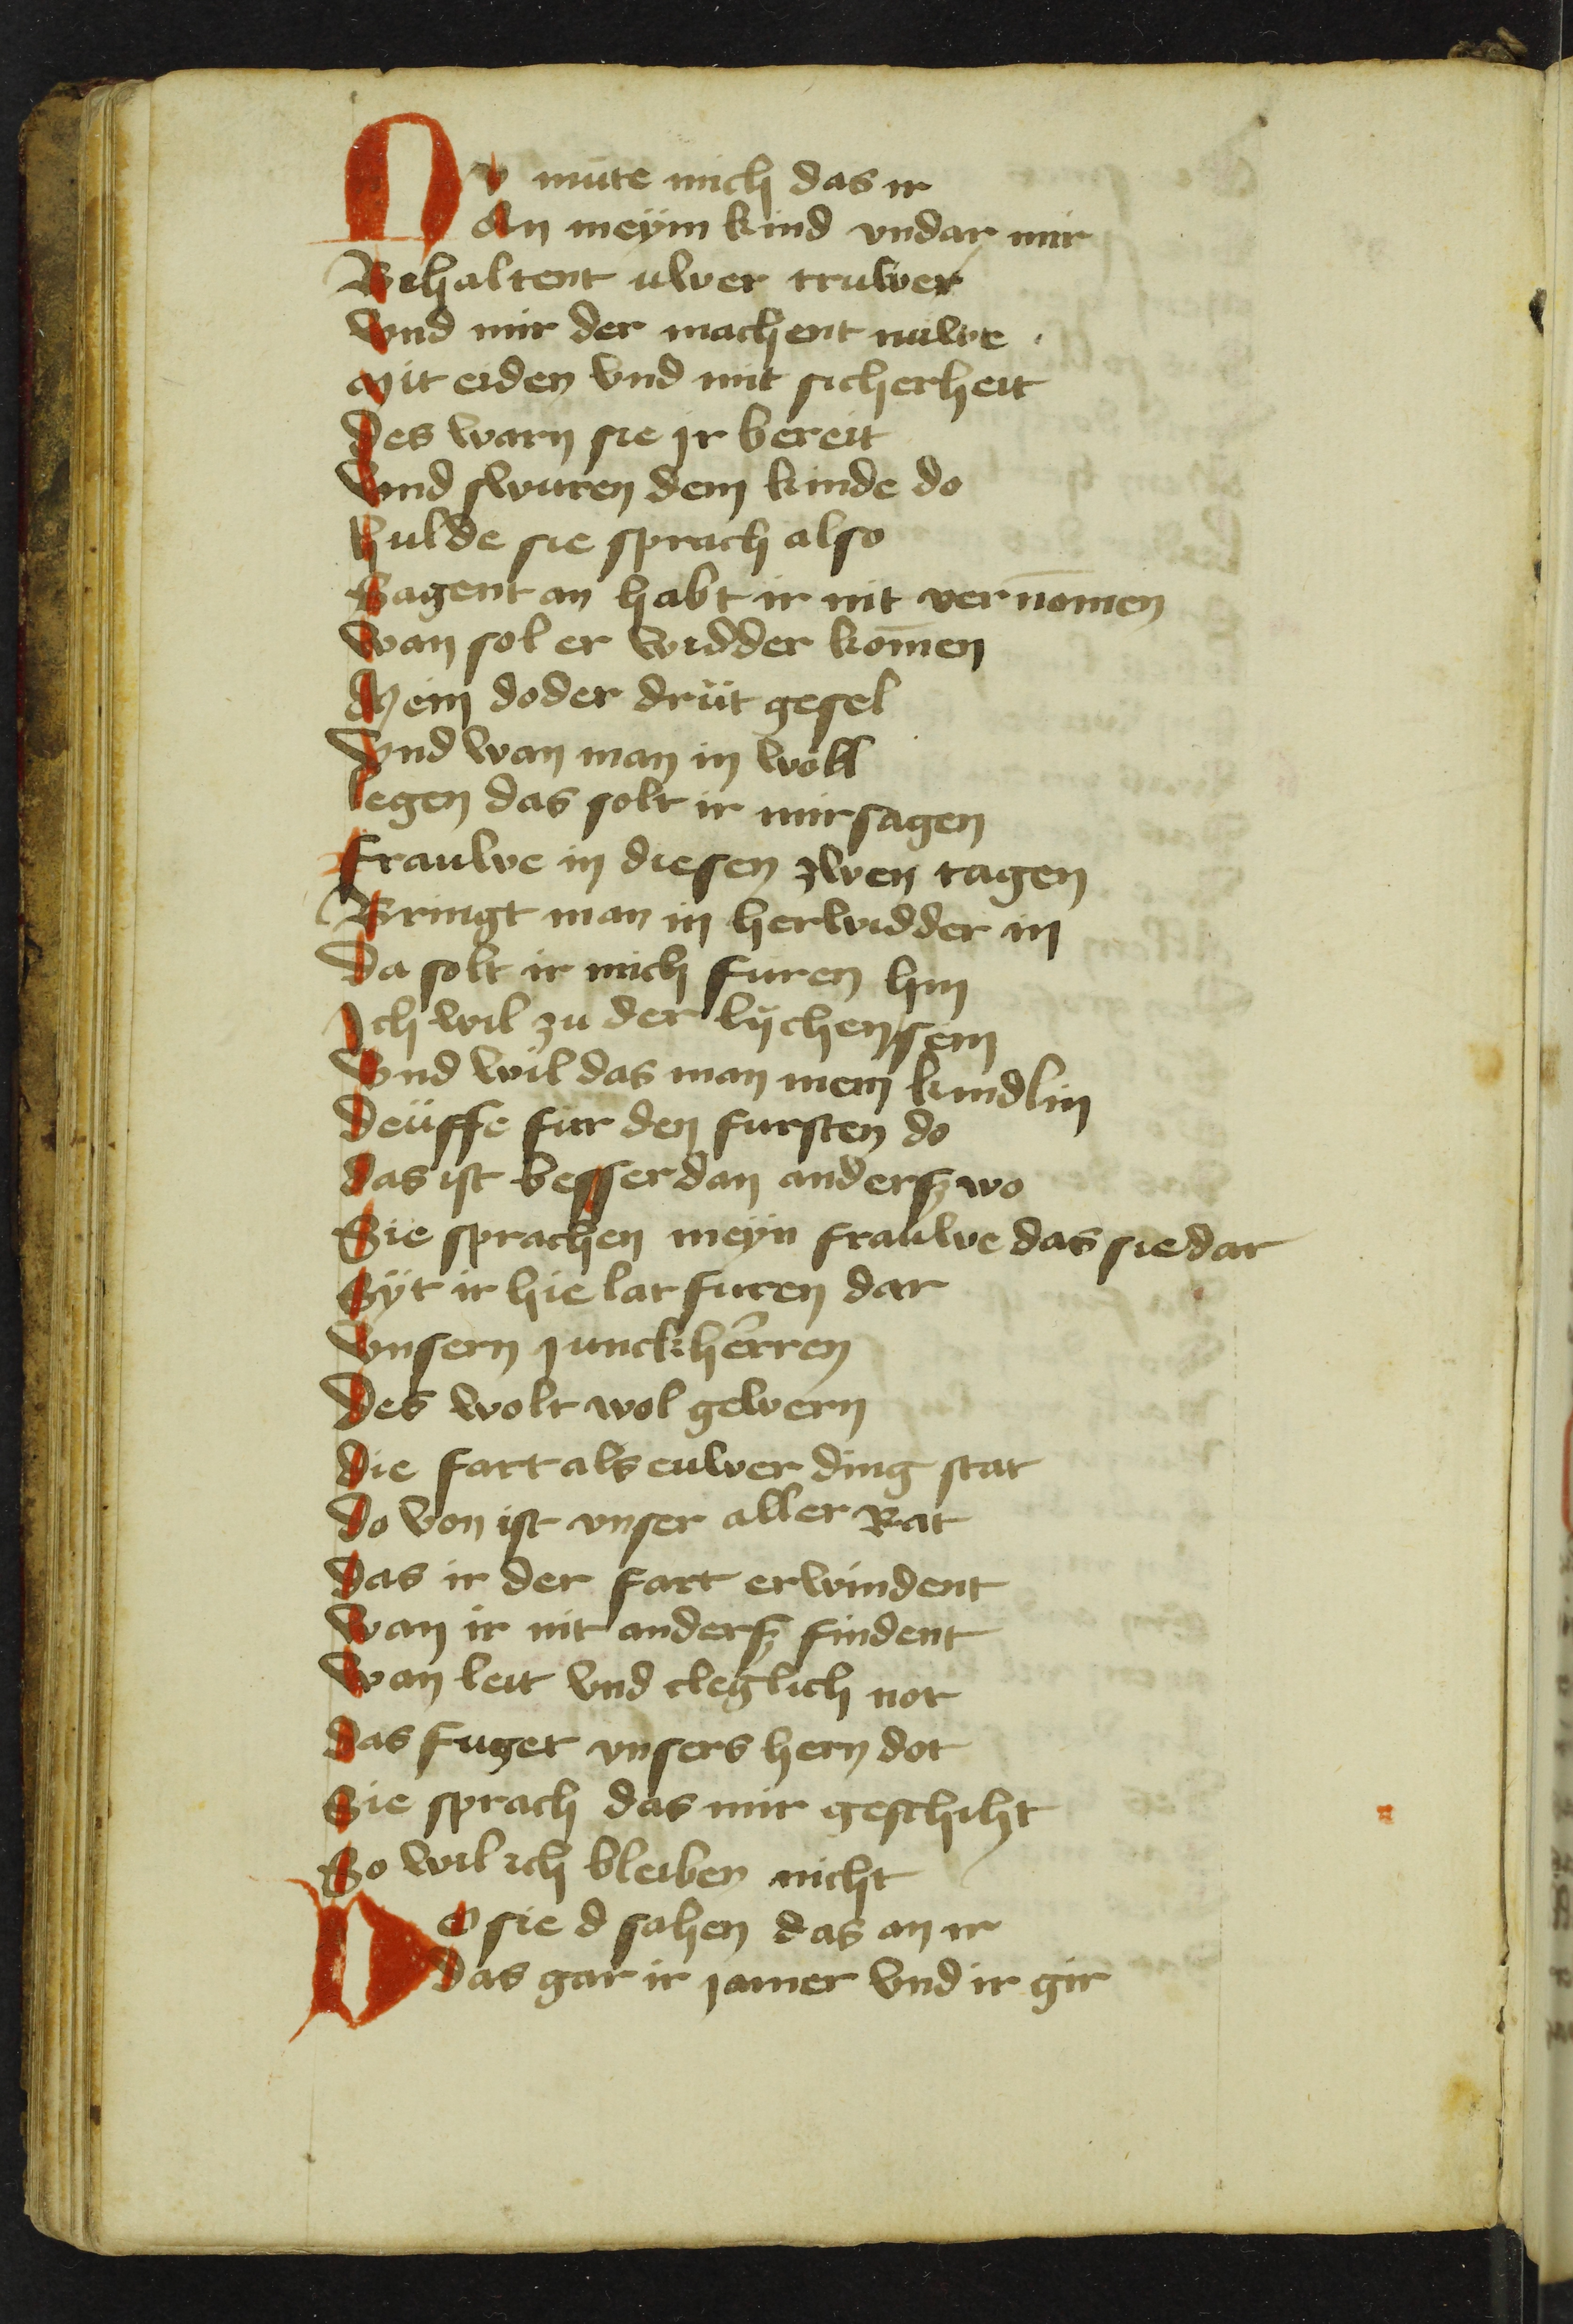 Nv mute mich das ir
An meym kind vndar mir
Behaltent uwer truwer
Vnd mir der machent nuwe
Mit eiden vnd mit sicherheit
Des warn sie jr bereit
Vnd swuren dem kinde do
Hulde sie sprach also
Sagent an habt ir nit vernom̄en
Wan sol er widder kom̄en
Mein doder drüt gesel
Vnd wan man in woll
legen das solt ir mir sagen
Frauwe in diesen zwen tagen
Bringt man in herwidder in
Da solt ir mich furen hin
Ich wil zu der lychen sein
Vnd wil das man mein kindlin
Deüffe fur den fursten do
Das ist besser dan anderß wo
Sie sprachen meyn frauwe das sie dar
Syt ir hie lat furen dar
Vnsern junckherren
Des wolt wol gewern
Die fart als euwer ding stat
Do von ist vnser aller Rat
Das ir der fart erwindent
Wan ir nit anderß findent
Wan leit vnd cleglich not
Das fuget vnsers hern dot
Sie sprach das mir geschiht
So wil ich bleiben nicht
Do sie d sahen das an ir
Das gar ir jamer vnd ir gir